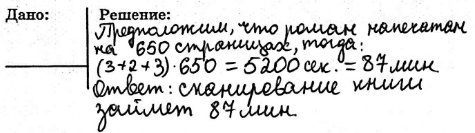 Дано: Решение:
Предположим, что роман напечатан
на 650 страницах, тогда:
(3+2+3)·650 = 5200 сек. = 87 мин
Ответ: сканирование книги
займет 87 мин